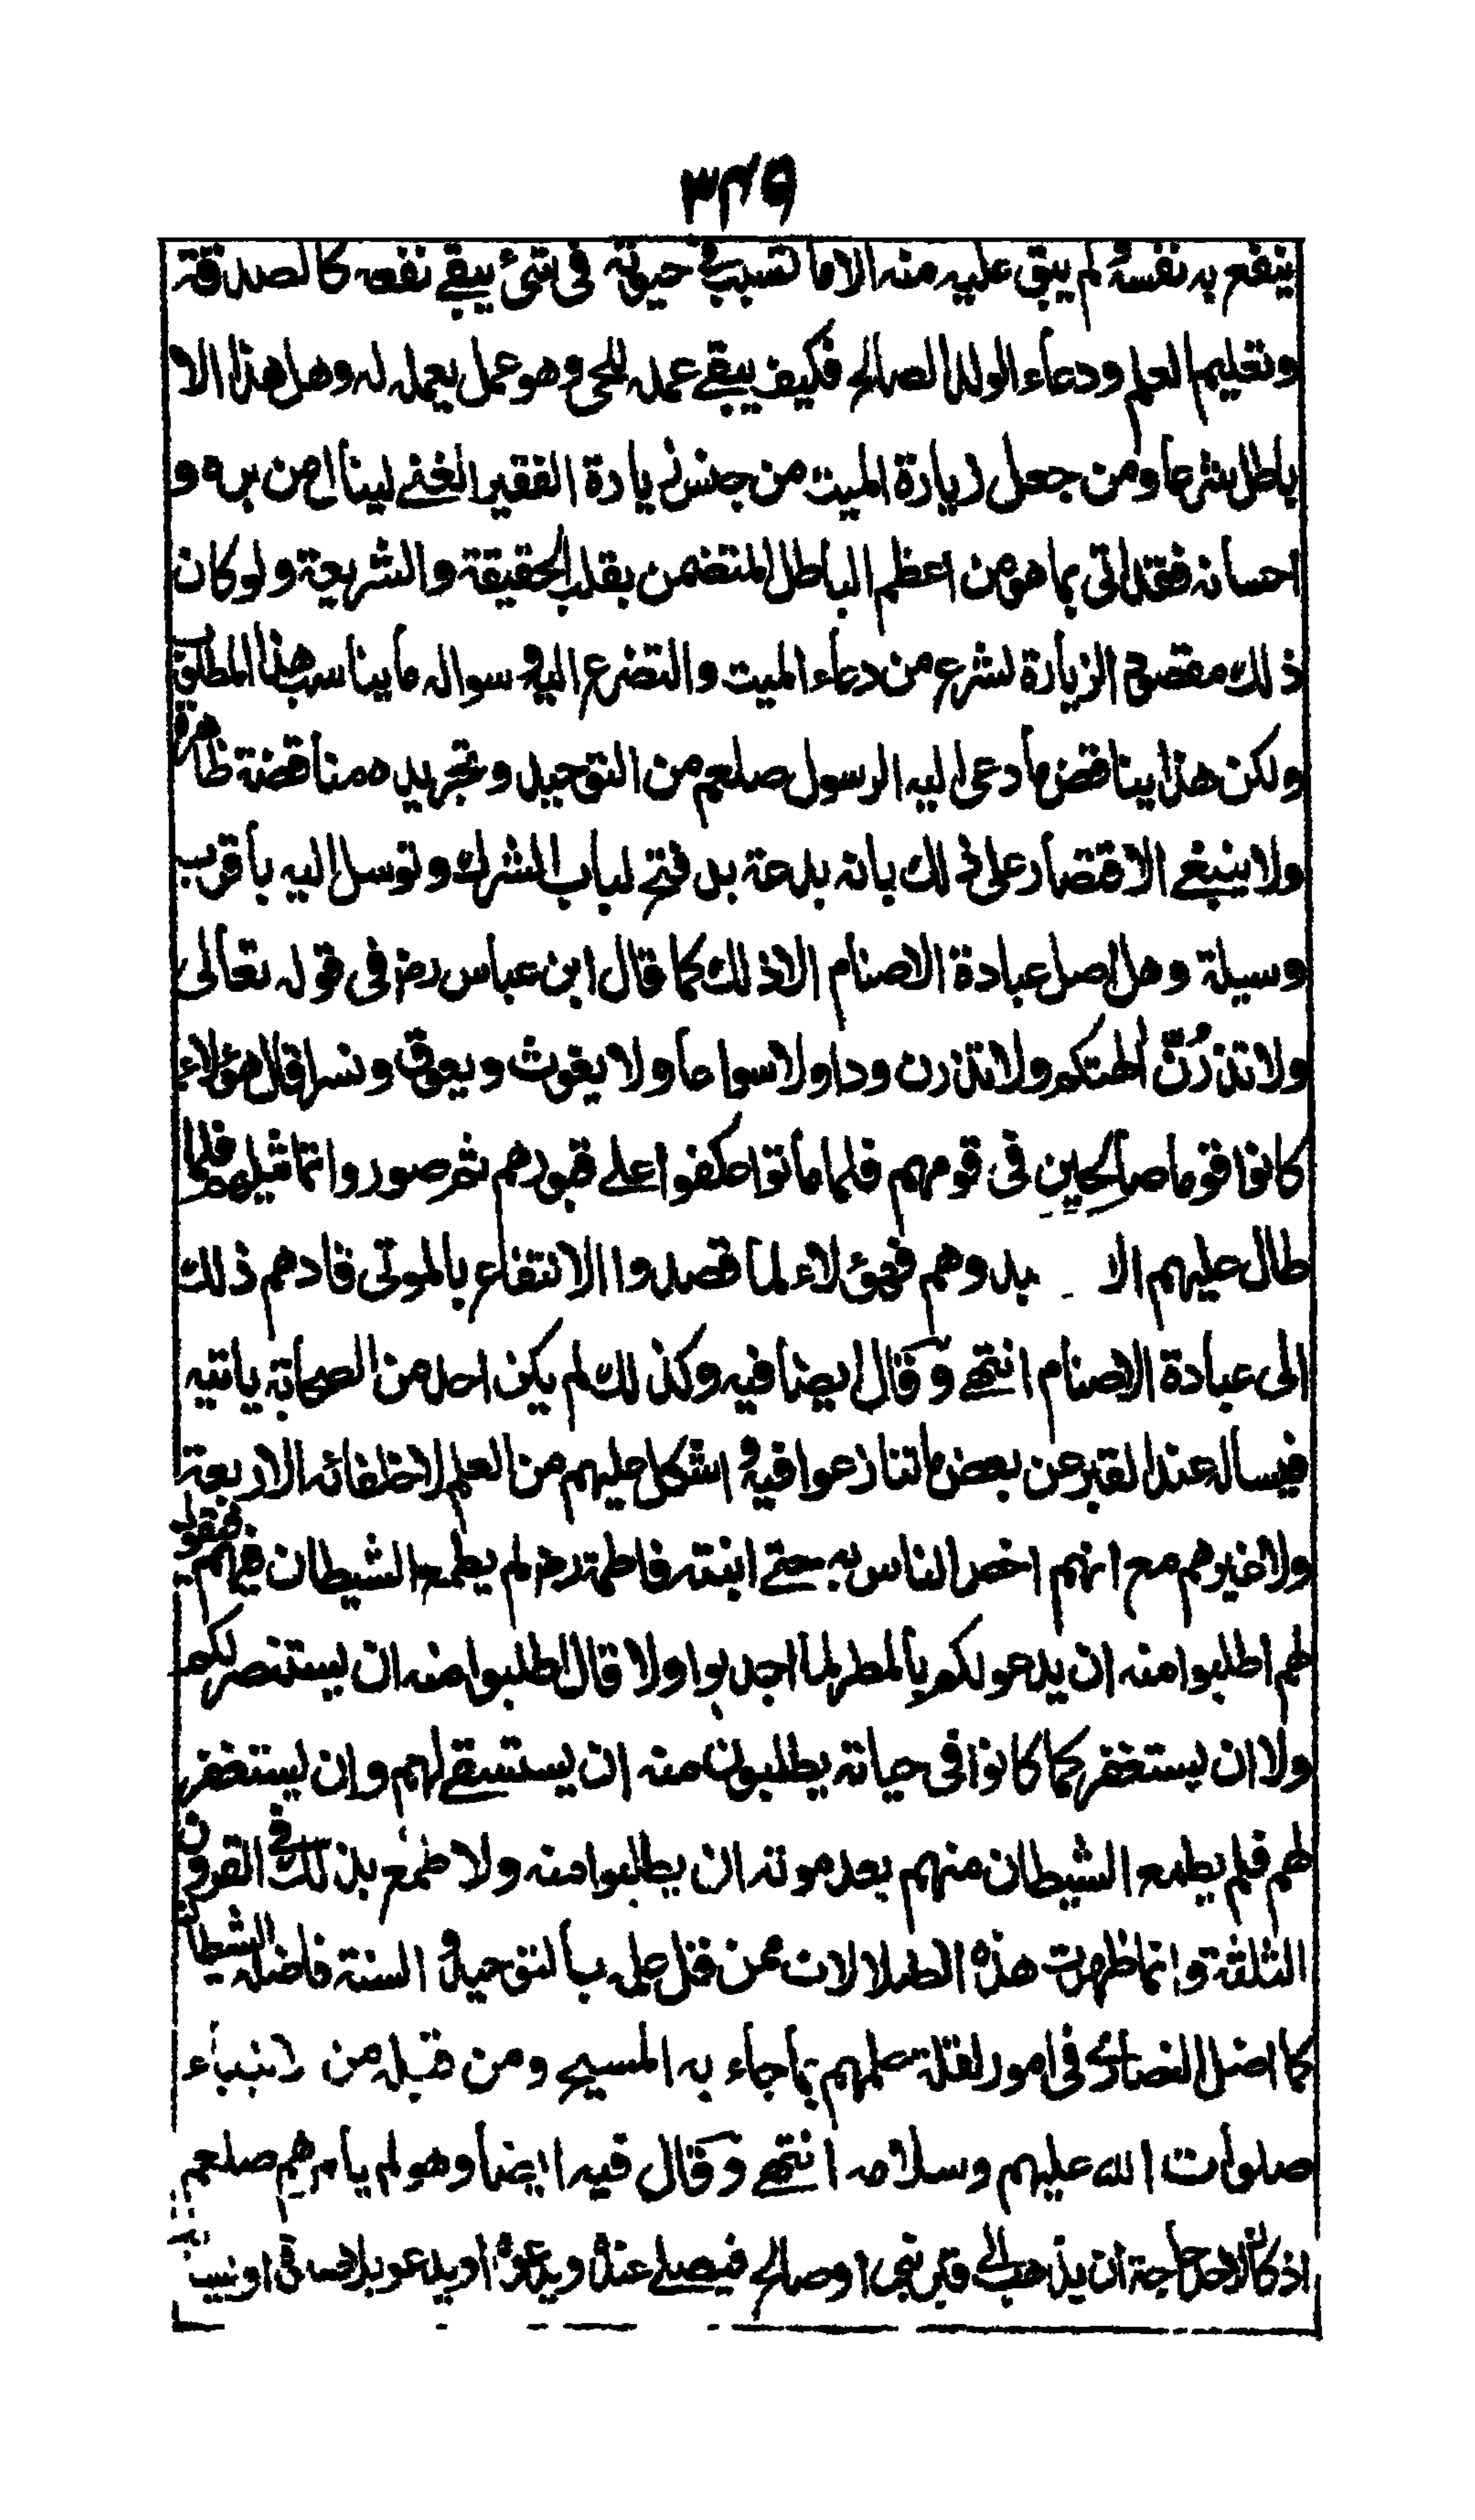 ٣٤٩
ينفع به نفسه لم يبق عليه منه الا ما تسبب فى حيوته فى شئ يبقے نفعه كالصدقة
وتعليم العلم ودعاء الولد الصالح فكيف يبقے عمله للحى وهو عمل يعمله له وهل هذا الا
باطل شرعا ومن جعل زيارة الميت من جنس زيادة الفقير الغنے لينال من بره و
احسانه فقد اتى بما هو من اعظم الباطل المتضمن بقلب الحقيقة والشريعة ولو كان
ذلك مقصود الزيارة لشرع من دعاء الميت والتضرع اليه وسواله ما يناسب هذا المطلق
ولكن هذا يناقض ما دعى اليه الرسول صلعم من التوحيد وتجريده مناقضة ظاهرة
ولا ينبغے الاقتصار على ذلك بانه بدعة بل فتح لباب الشرك وتوسل اليه باقرب
وسيلة وهل اصل عبادة الاصنام الا ذلك كما قال ابن عباس رض فى قوله تعالى
ولا تذرُنَّ الهتكم ولا تذرن ودا ولا سواعا ولا يغوث ويعوق ونسرا قال هؤلاء
كانوا قوما صالحين فى قومهم فلما ماتوا عكفوا على قبورهم ثم صوروا تماثيلهم فلما
طال عليهم الا بدوهم فهؤلاء لما قصدوا الانتفاع بالموتى قادهم ذلك
الى عبادة الاصنام انتهے وقال ايضا فيه وكذلك لم يكن احد من الصحابة ياتيه
فيساله عند القبر عن بعض ما تنازعوا فيه اشكل عليهم من العلم لا خلفائه الاربعة
ولا غيرهم مع انهم اخص الناس به حتے ابنته فاطمة رض لم يطمع الشيطان فيهم فيقول
لهم اطلبوا منه ان يدعو لكم بالمطر لما اجدبوا ولا قال اطلبوا منه ان يستنصر لكم
ولا ان يستغفر كما كانوا فى حياته يطلبون منه ان يستسقے لهم وان يستغفر
لهم فلم يطمع الشيطان منهم بعد موته ان يطلبوا منه ولا طمع بذلك فى القرون
الثلثة وانما ظهرت هذه الضلالات ممن قل علمه بالتوحيد و السنة فاضله الشيطان
كما اضل النصارى فى امور لقلة علمهم بما جاء به المسيح ومن قبله من الانبياء
صلوات الله عليهم وسلامه انتهے وقال فيه ايضا وهو لم يامرهم صلعم
اذ كان لاحد حاجة ان يذهب الى قبر نبى او صالح فيصلے عنده ويدعوه او يدعو بلا